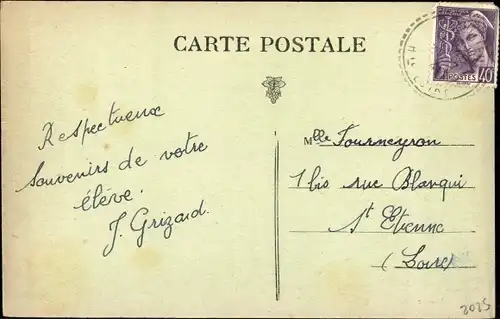 CARTE POSTALE
POSTES 40
Respectueux
souvenirs de votre
élève.
J. Grizard.
Mlle Tourneyron
1 bis rue Blanqui
St Etienne
(Loire)
2025